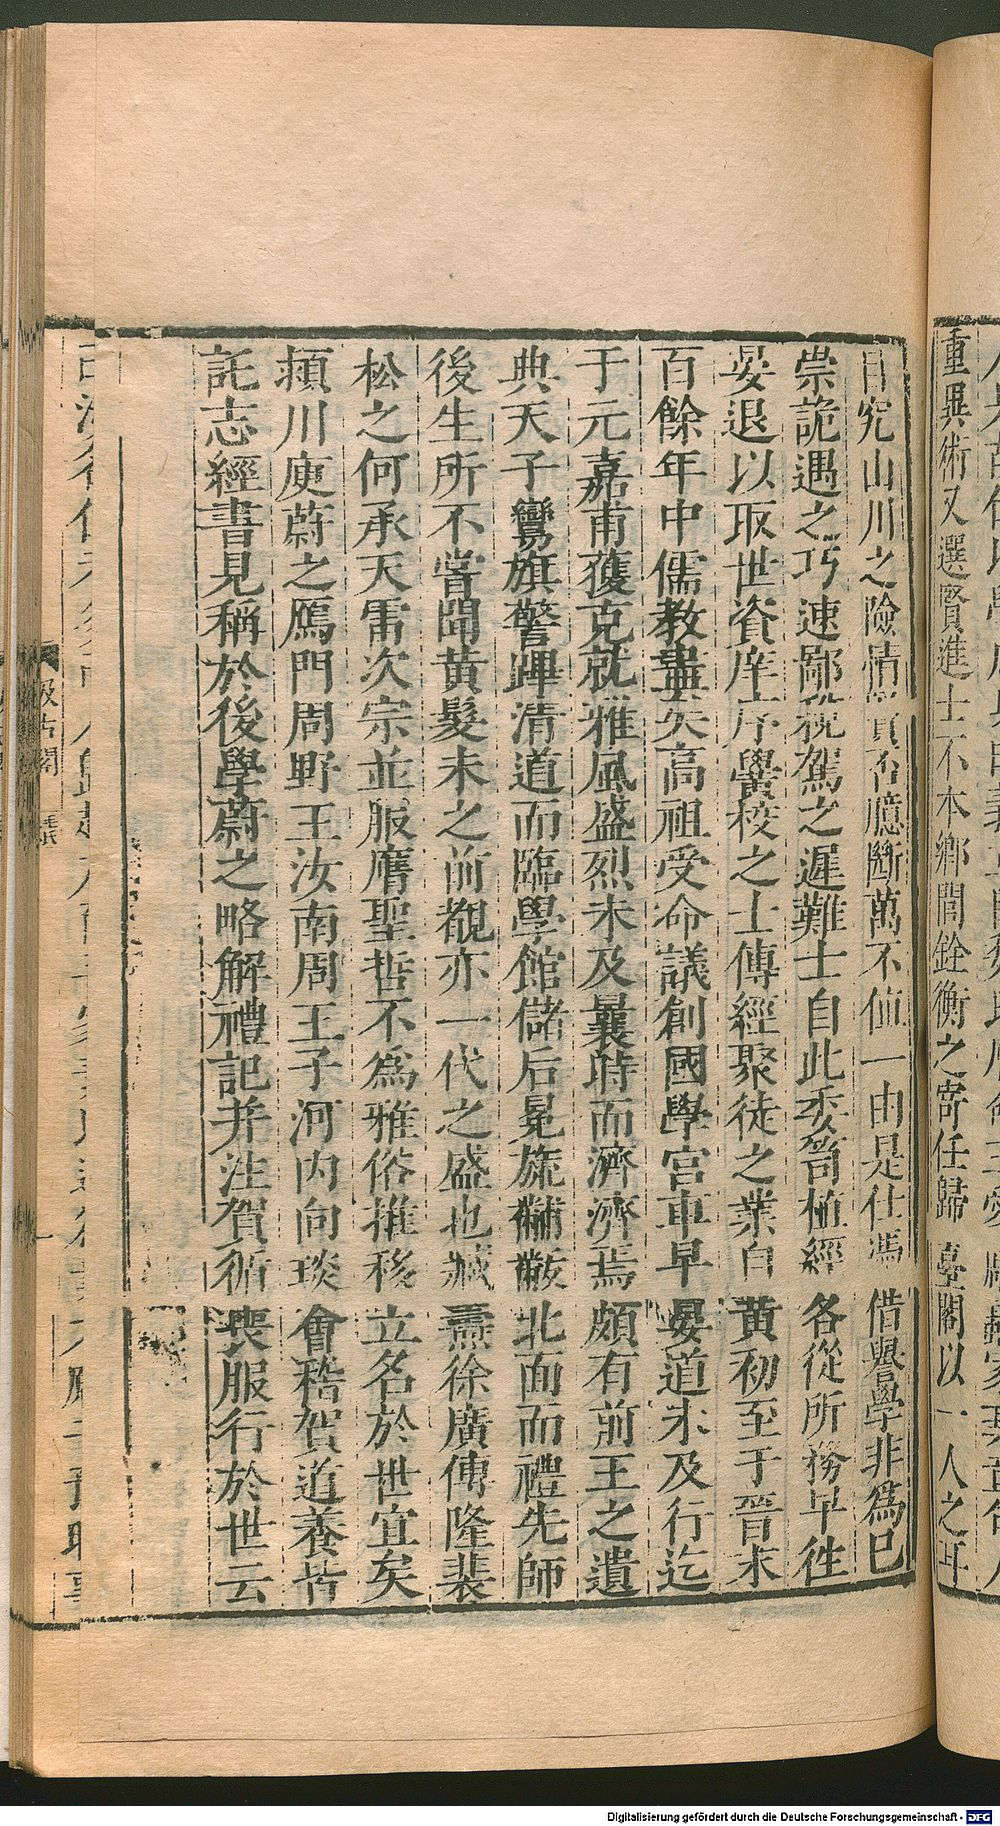 重異術又選賢進士不本鄉閭銓衡之寄任歸臺閣以一人之耳
目究山川之險情賢否臆斷萬不値一由是仕憑借譽學非爲己
崇詭遇之巧速鄙稅駕之遲難士自此委笥植經各從所務早往
晏退以取世資庠序黌校之士傳經聚徒之業自黃初至于晉末
百餘年中儒教盡矣高祖受命議創國學宮車早晏道未及行迄
于元嘉甫獲克就雅風盛烈未及曩時而濟濟焉頗有前王之遺
典天子鸞旗警蹕清道而臨學館儲后冕旒黼黻北面而禮先師
後生所不嘗聞黃髮未之前覩亦一代之盛也臧燾徐廣傅隆裴
松之何承天雷次宗並服膺聖哲不爲雅俗推移立名於世宜矣
潁川庾蔚之鴈門周野王汝南周王子河內向琰會稽賀道養皆
託志經書見稱於後學蔚之略解禮記并注賀循喪服行於世云
汲古閣
Digitalisierung gefördert durch die Deutsche Forschungsgemeinschaft - DFG